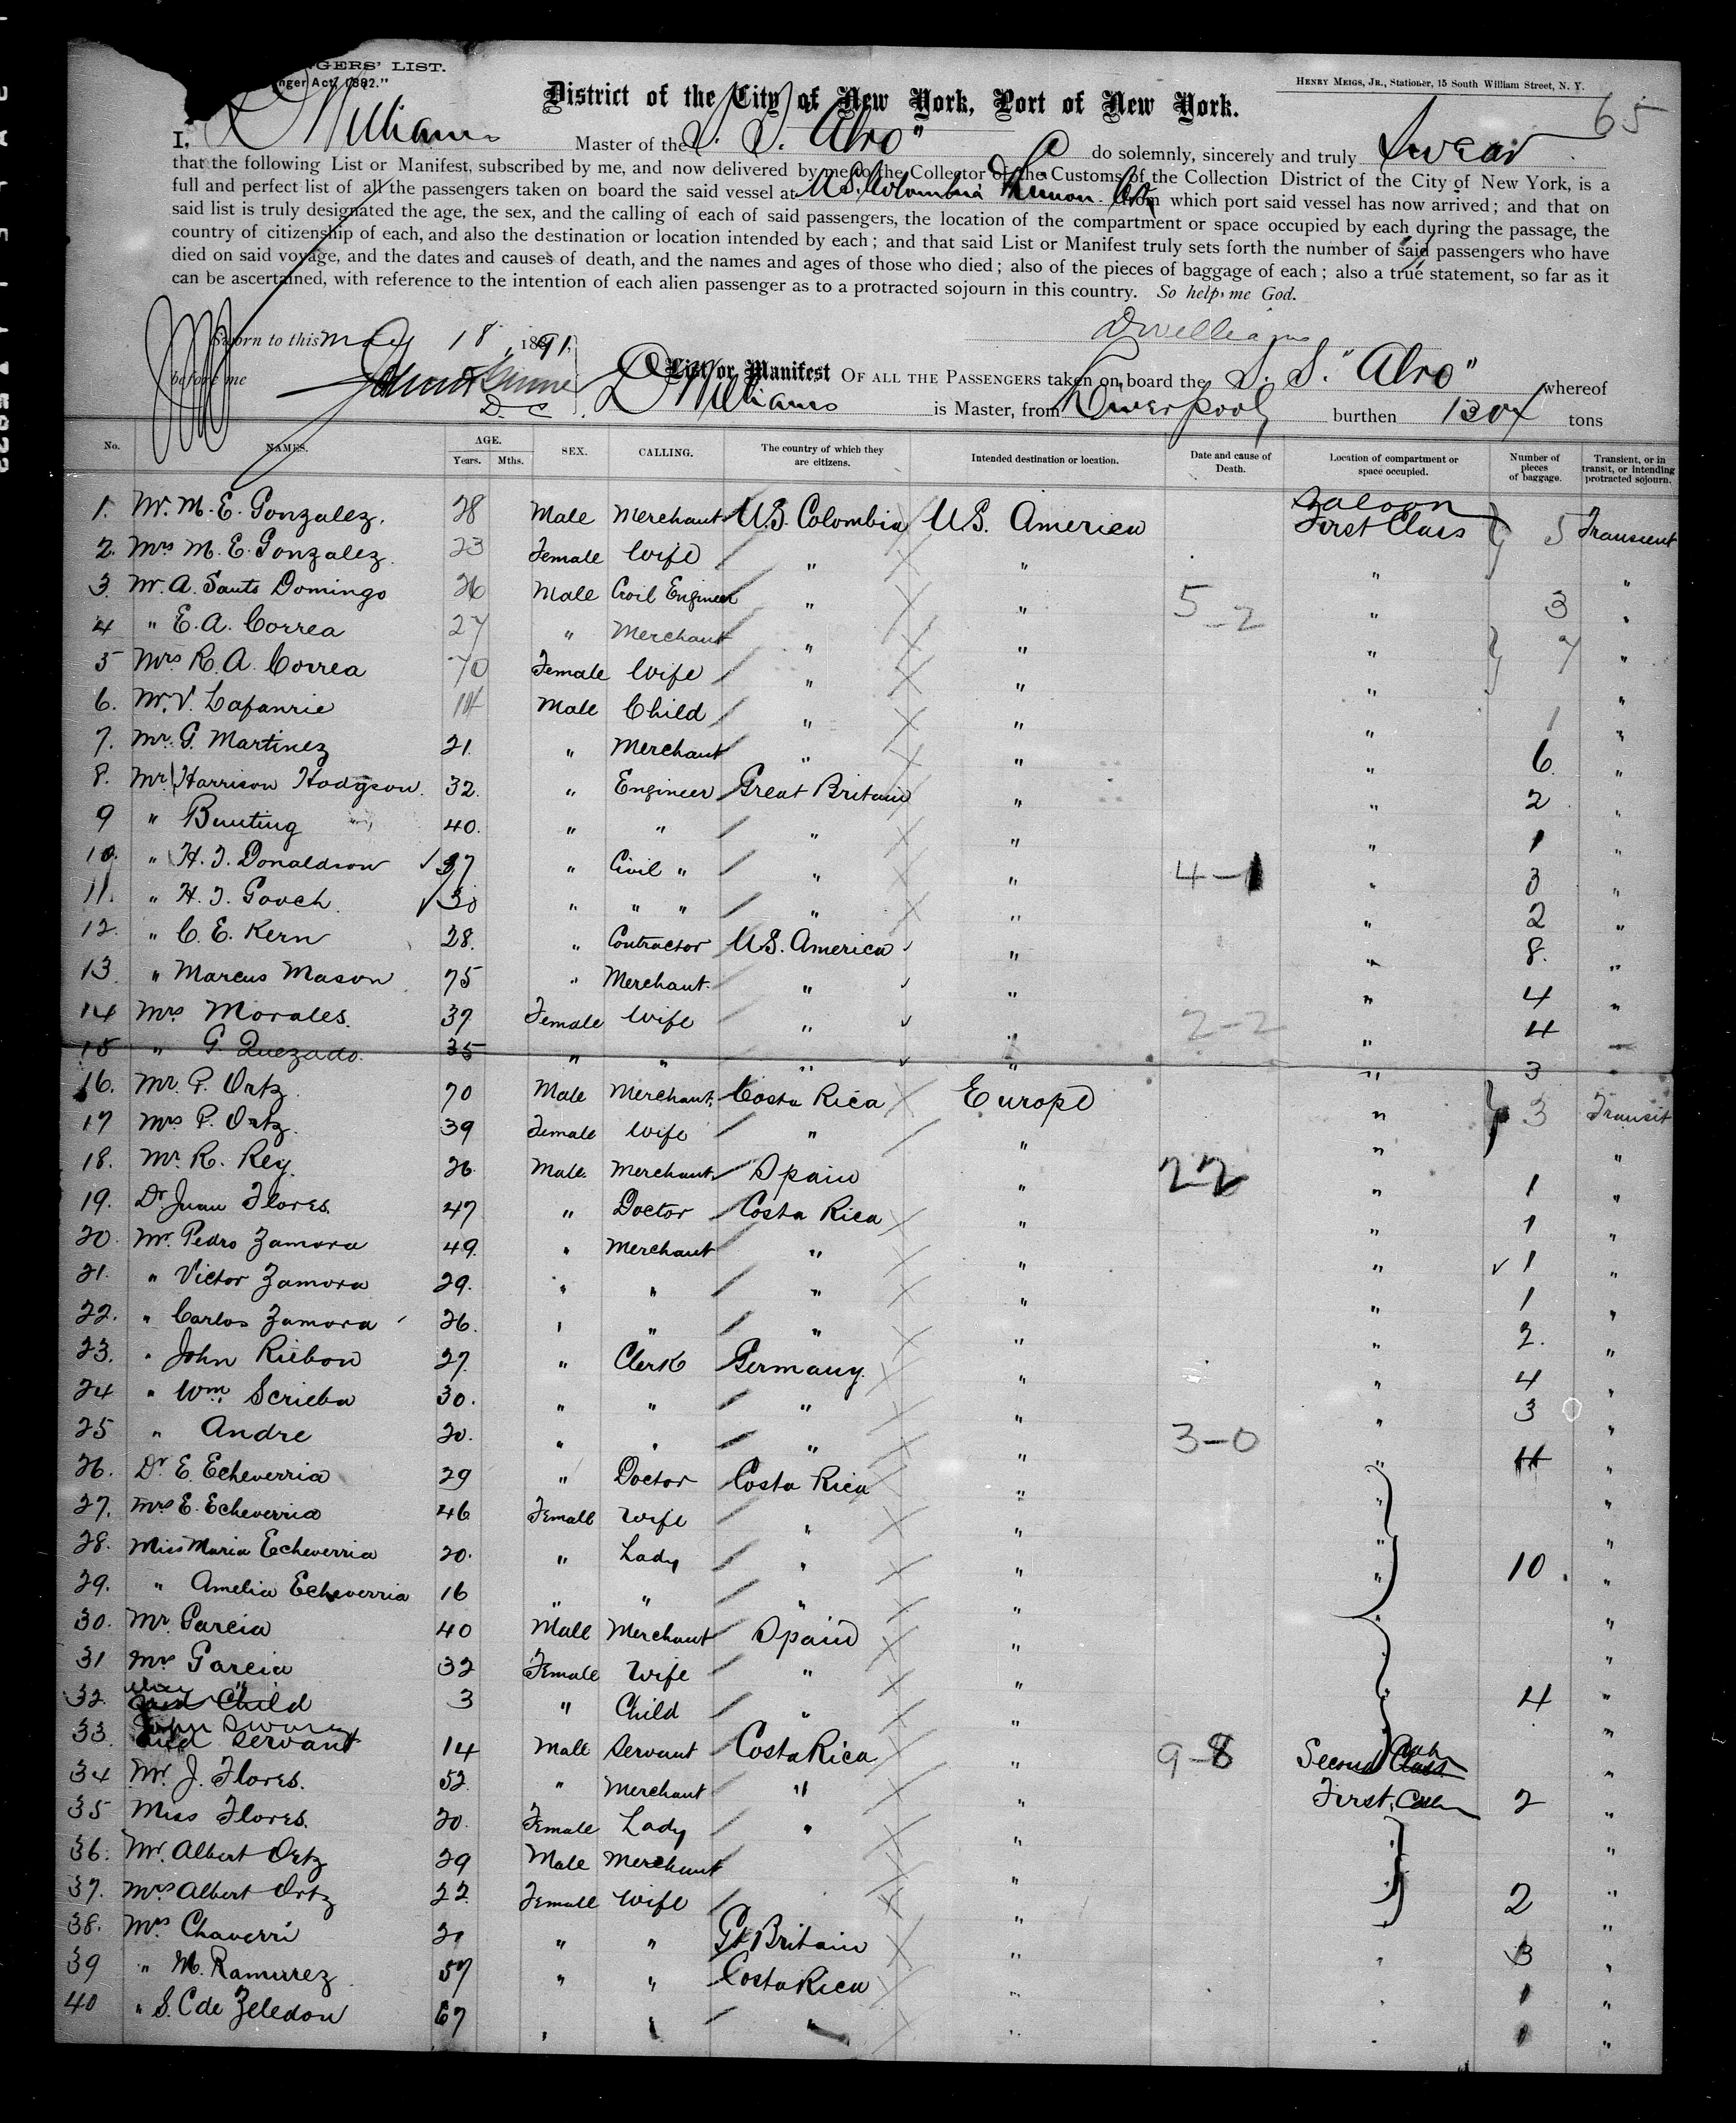 NGERS' LIST.
nger Act, 1882."
HENRY MEIGS, JR., Stationer, 15 South William Street, N. Y.
65
District of the City of New York, Port of New York.
I, D Williams Master of the S. S. "Alvo" do solemnly, sincerely and truly Swear
that the following List or Manifest, subscribed by me, and now delivered by me to the Collector of the Customs of the Collection District of the City of New York, is a
full and perfect list of all the passengers taken on board the said vessel at U.S. Colombia from which port said vessel has now arrived; and that on
said list is truly designated the age, the sex, and the calling of each of said passengers, the location of the compartment or space occupied by each during the passage, the
country of citizenship of each, and also the destination or location intended by each; and that said List or Manifest truly sets forth the number of said passengers who have
died on said voyage, and the dates and causes of death, and the names and ages of those who died; also of the pieces of baggage of each; also a true statement, so far as it
can be ascertained, with reference to the intention of each alien passenger as to a protracted sojourn in this country. So help me God.
DWilliams
Sworn to this May 18, 1891,
before me
D. C.
List or Manifest OF ALL THE PASSENGERS taken on board the S. S. "Alvo" whereof
D Williams is Master, from Liverpool burthen 1304 tons
No. NAMES. AGE. Years. Mths. SEX. CALLING. The country of which they are citizens. Intended destination or location. Date and cause of Death. Location of compartment or space occupied. Number of pieces of baggage. Transient, or in transit, or intending protracted sojourn.
1. Mr. M. E. Gonzalez. 28 Male Merchant U.S. Colombia U.S. America Saloon First Class 5 Transient
2. Mrs M. E. Gonzalez. 23 Female Wife " " " "
3. Mr. A. Santo Domingo 26 Male Civil Engineer " " 5-2 " 3 "
4 " E. A. Correa 27 " Merchant " " " 7 "
5 Mrs R. A. Correa 70 Female Wife " " " "
6. Mr. V. Lafanrie 14 Male Child " " " 1 "
7. Mr. G. Martinez 21. " Merchant " " " 6 "
8. Mr Harrison Hodgson. 32. " Engineer Great Britain " " 2 "
9 " Bunting 40. " " " " " 1 "
10. " H. J. Donaldson 37 " Civil " " " 4-1 " 3 "
11. " H. J. Gooch. 30 " " " " " " 2 "
12. " C. E. Kern 28. " Contractor U.S. America " " 8. "
13. " Marcus Mason 75 " Merchant. " " " 4 "
14 Mrs Morales. 37 Female Wife " " 2-2 " 4
15 " G. Quezado. 35 " " " " " 3
16. Mr. P. Ortz. 70 Male Merchant. Costa Rica Europe " 3 Transit
17 Mrs P. Ortz. 39 Female Wife " " " "
18. Mr. R. Rey. 26 Male Merchant Spain " 22 " 1 "
19. Dr Juan Flores. 47 " Doctor Costa Rica " " 1 "
20. Mr. Pedro Zamora 49. " Merchant " " " 1 "
21. " Victor Zamora 29. " " " " " 1 "
22. " Carlos Zamora 26. " " " " " 2. "
23. " John Riebon 27. " Clerk Germany. " " 4 "
24 " Wm. Scrieba 30. " " " " " 3 "
25 " Andre 20. " " " " 3-0 " "
26. Dr E. Echeverria 29 " Doctor Costa Rica " " "
27. Mrs E. Echeverria 46 Female Wife " " " "
28. Miss Maria Echeverria 20. " Lady " " " 10. "
29. " Amelia Echeverria 16 " " " " " "
30. Mr. Garcia 40 Male Merchant Spain " "
31 Mrs Garcia 32 Female Wife " " "
32. and Child 3 " Child " " 4 "
33. and Servant 14 Male Servant Costa Rica " 9-8 Second Class "
34 Mr. J. Flores. 52. " Merchant " " First, 2 "
35 Miss Flores. 20. Female Lady " " "
36. Mr. Albert Ortz 29 Male Merchant " "
37. Mrs Albert Ortz 22. Female Wife " 2 "
38. Mrs Chaverri " " Gt Britain " " 3 "
39 " M. Ramirez 57 " " Costa Rica " " 1 "
40 " S. C de Zeledon 67 " " " " " 1 "